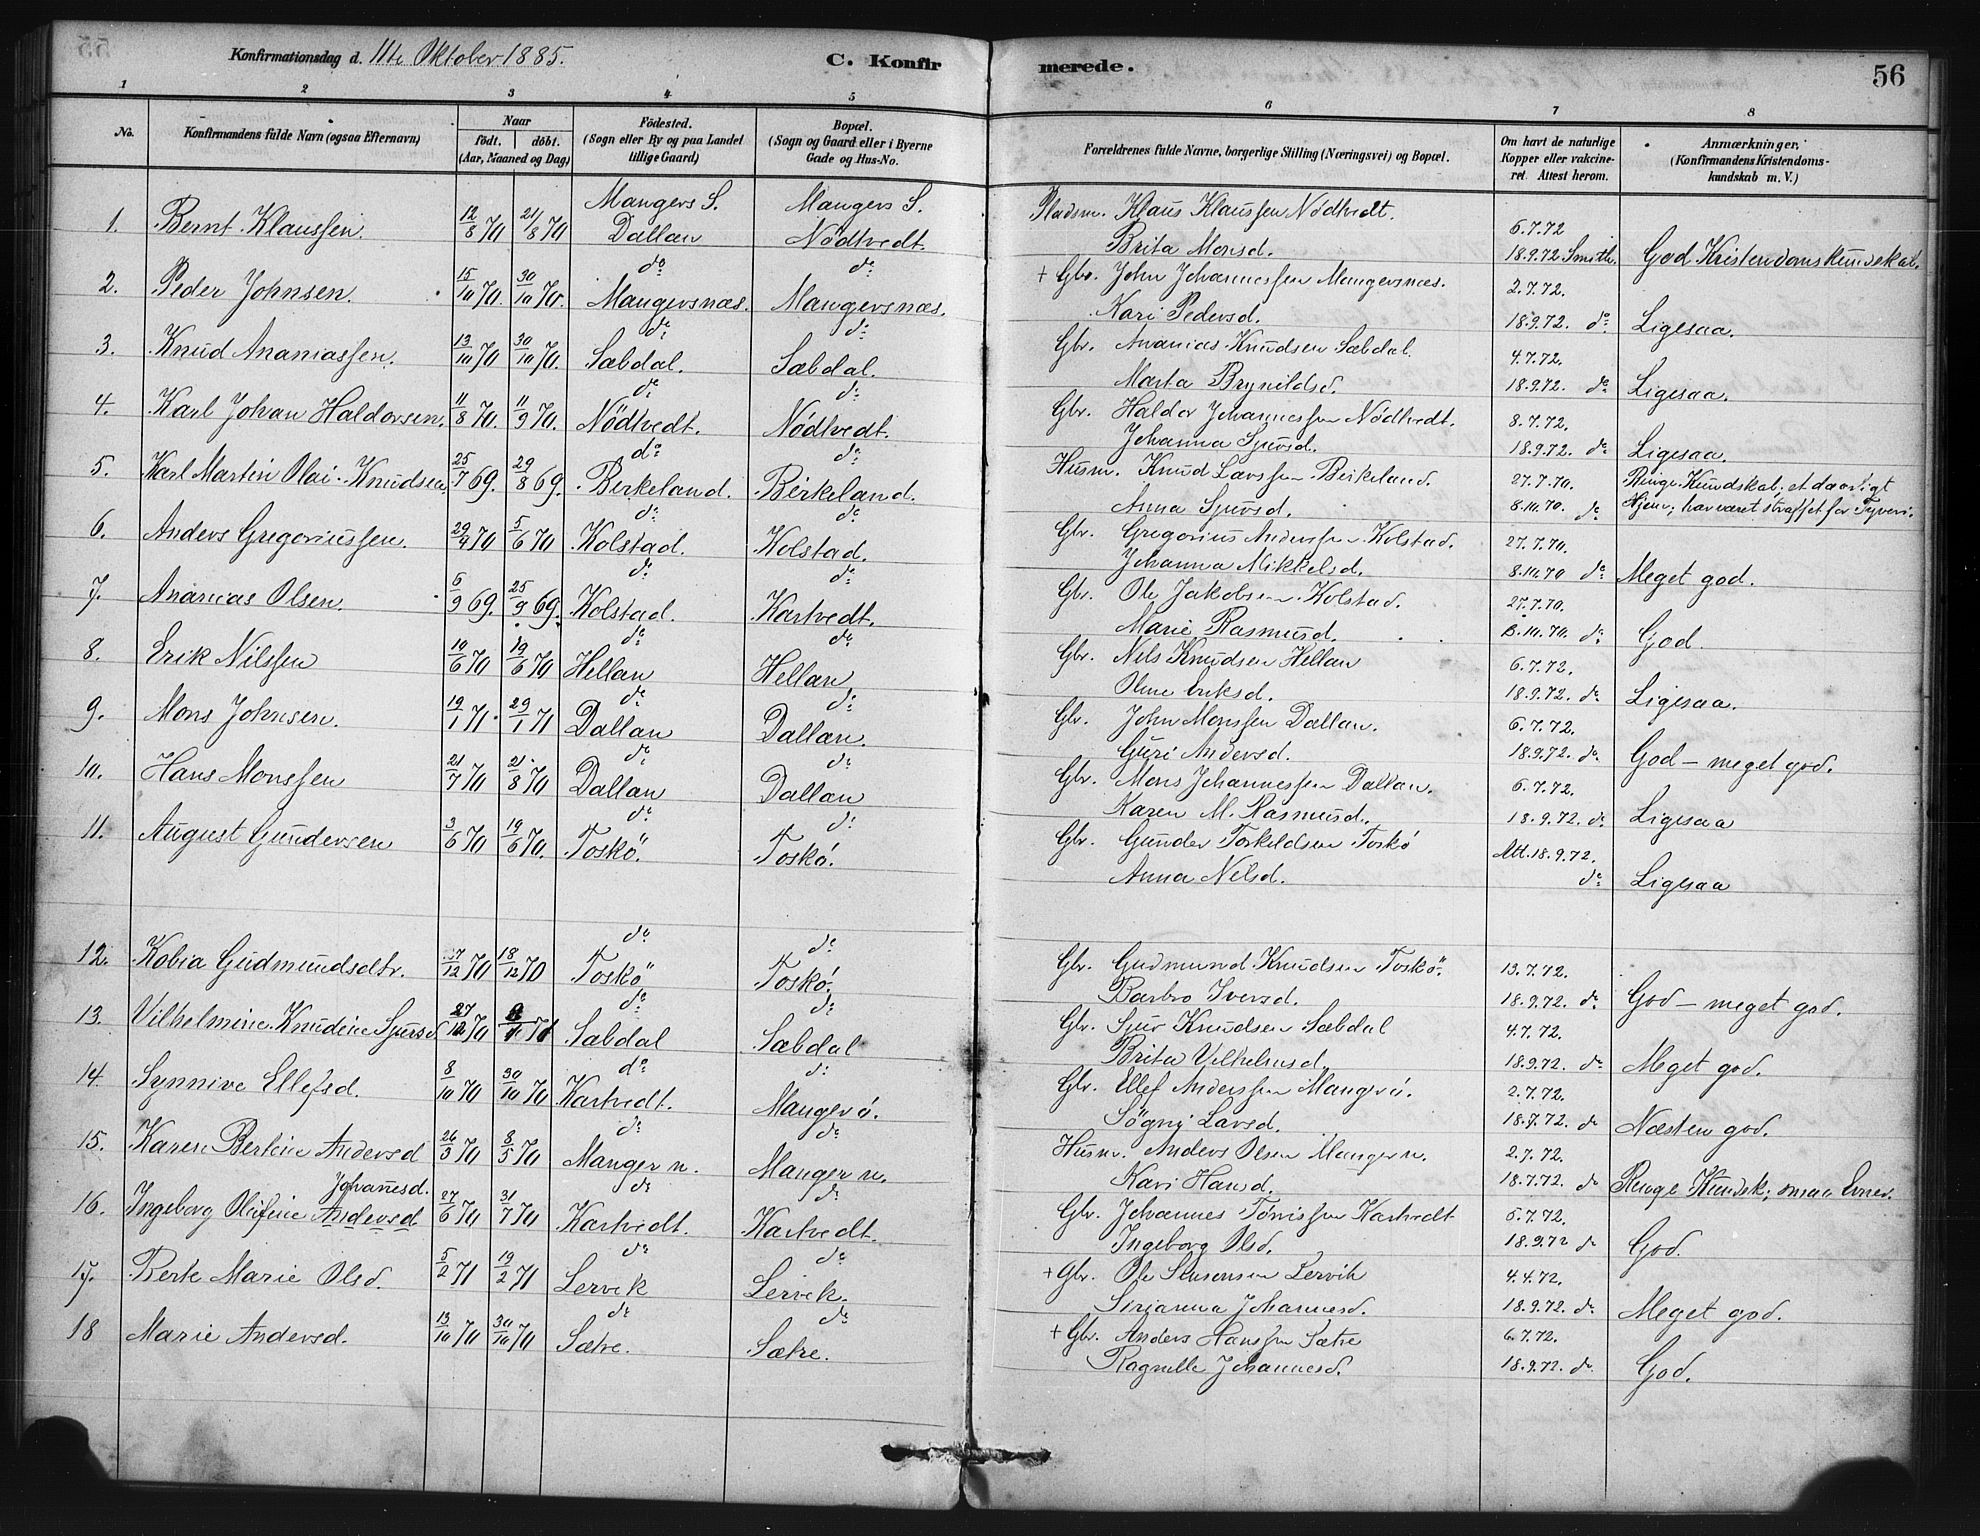 Konfirmationsdag d. 11te Oktober 1885.
C. Konfirmerede.
56
1 2 3 4 5 6 7 8
No.
Konfirmandens fulde Navn (ogsaa Efternavn)
Naar
födt. döbt.
(Aar, Maaned og Dag)
Födested.
(Sogn eller By og paa Landet
tillige Gaard)
Bopæl.
(Sogn og Gaard eller i Byerne
Gade og Hus-No.
Forældrenes fulde Navne, borgerlige Stilling (Næringsvei) og Bopæl.
Om havt de naturlige
Kopper eller vakcine-
ret. Attest herom.
Anmærkninger.
(Konfirmandens Kristendoms-
kundskab m. V.)
Mangers S. Mangers S. Pladsm. Klaus Klaussen Nödtvedt. 6.7.72
1. Bernt Klaussen. 12/8 70 21/8 70 Dallan Nödtvedt. Brita Monsd. 18.9.72 Smith. God Kristendomskundskab.
do do + Gbr. John Johannessen Mangersnæs. 2.7.72.
2. Peder Johnsen. 15/10 70. 30/10 70. Mangersnæs. Mangersnæs. Kari Pedersd. 18.9.72. do Ligesaa.
do do Gbr. Ananias Knudsen Sæbdal. 4.7.72.
3. Knud Ananiassen. 13/10 70 30/10 70. Sæbdal. Sæbdal. Marta Brynildsd. 18.9.72. do Ligesaa.
do do Gbr. Haldor Johannessen Nödtvedt. 8.7.72.
4. Karl Johan Haldorsen. 11/8 70. 11/9 70. Nödtvedt. Nödtvedt. Johanna Sjursd. 18.9.72. do Ligesaa.
do do Husm. Knud Larssen Birkeland. 27.7.70. Ringe Kundskab; et daarligt
5. Karl Martin Olai Knudsen 25/7 69. 29/8 69. Birkeland. Birkeland. Anna Sjursd. 8.10.70. do Hjem; har været straffet for Tyveri.
do do Gbr. Gregorius Anderssen Kolstad. 27.7.70.
6. Anders Gregoriussen. 29/4 70 5/6 70 Kolstad. Kolstad. Johanna Mikkelsd. 8.10.70 do Meget god.
do do Gbr. Ole Jakobsen Kolstad. 27.7.70.
7. Ananias Olsen. 6/9 69. 25/9 69. Kolstad. Kartvedt. Marie Rasmusd. 8.10.70. do God.
do do Gbr. Nils Knudsen Hellan 6.7.72.
8. Erik Nilssen 10/6 70 19/6 70 Hellan Hellan Eriksd. 18.9.72. do Ligesaa.
do do Gbr. John Monssen Dallan. 6.7.72.
9. Mons Johnsen. 19/1 71. 29/1 71 Dallan Dallan. Guri Andersd. 18.9.72. do God – meget god.
do do Gbr. Mons Johannessen Dallan. 6.7.72.
10. Hans Monssen 21/7 70 21/8 70 Dallan Dallan Karen M. Rasmusd. 18.9.72. do Ligesaa
do do Gbr. Gunder Torkeldsen Toskö Att. 18.9.72.
11. August Gundersen 3/6 70 19/6 70. Toskö. Toskö. Anna Nelsd. do Ligesaa
do do Gbr. Gudmund Knudsen Toskö. 13.7.72.
12. Kobia Gudmundsdtr. /12 70 18/12 70 Toskö Toskö. Barbro Iversd. 18.9.72. do God – meget god.
do do Gbr. Sjur Knudsen Sæbdal 4.7.72.
13. Vilhelmine Knudine Sjursd 27/12 70 Sæbdal Sæbdal Brita Vilhelmsd. 18.9.72. do Meget god.
do do Gbr. Ellef Anderssen Mangerö. 2.7.72.
14. Synnive Ellefsd. 8/10 70 30/10 70 Kartvedt. Mangerö. Sögni Larsd. 18.9.72. do Næsten god.
do do Husm. Anders Olsen Manger n. 2.7.72.
15. Karen Bertine Andersd 26/3 70 8/5 70 Manger n. Manger n. Kari Hansd. 18.7.72. do Ringe Kundsk; smaa Evner.
Johannesd. do do Gbr. Johannes Tönnissen Kartvedt 6.7.72.
16. Ingeborg Olufine Andersd 27/6 70 31/7 70 Kartvedt. Kartvedt. Ingeborg Olsd. 18.9.72 do God.
do do + Gbr. Ole Lervik 4.4.72.
17. Berte Marie Olsd. 5/2 71 19/2 71 Lervik Lervik. Sirianna Johannesd. 18.9.72. do Meget god.
do do + Gbr. Anders Hanssen Sætre 6.7.72.
18 Marie Andersd. 13/10 70 30/10 70 Sætre. Sætre. Ragnilde Johannesd. 18.9.72. do God.